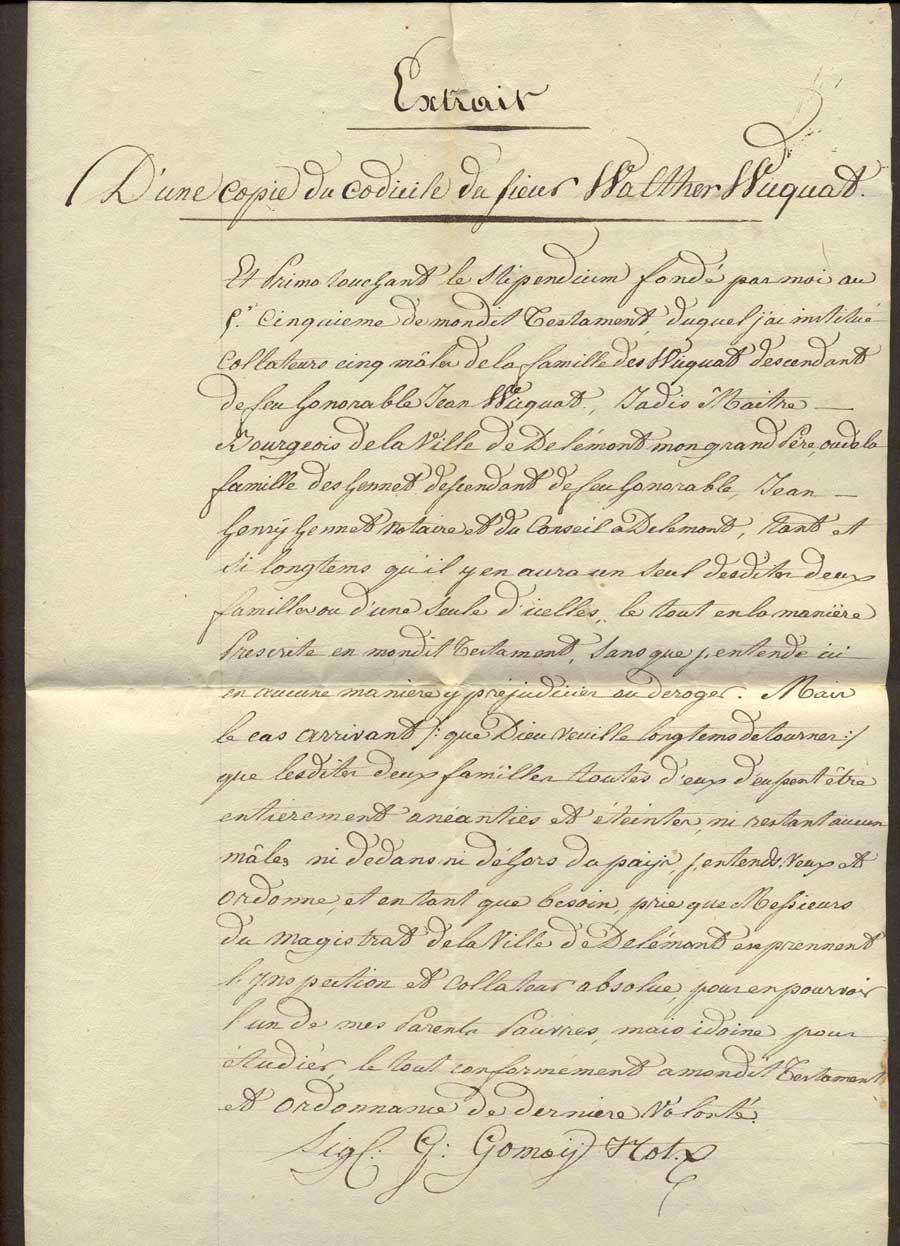 Extrait
D'une copie du codicile du sieur Walther Wuquat.
Et Primo touchant le Stipendium fondé par moi au
§.e cinquieme de mondit Testament, duquel j'ai institué
Collateurs cinq mâles de la famille des Wuquat descendant
de feu honorable Jean Wuquat, Jadis Maitre —
Bourgeois de la Ville de Delémont mon grand Père, ou de la
famille des Hennet descendant de feu honorable, Jean —
Henrÿ Hennet Notaire et du Conseil a Delemont, tant et
si longtems qu'il y en aura un seul desdites deux
familles ou d'une seule d'icelles, le tout en la maniere
Prescrite en mondit Testament, Sans que j'entende ici
en aucune maniere y préjudicier ou deroger. Mais
le cas arrivant /: que Dieu veuille longtems detourner :/
que lesdites deux familles toutes d'eux d'eusent être
entierement anéanties et éteintes, ni restant aucun
mâles ni dedans ni déhors du païs, j'entends, veux et
ordonne, et en tant que besoin, prie que Messieurs
du Magistrat de la Ville de Delémont en prennent
l'Ynspection et Collateur absolue, pour en pourvoir
l'un de mes Parents Pauvres, mais idoine pour
étudier, le tout conformément a mondit Testament
et ordonnance de derniere Volonté.
Sig.: G: Gomoÿ Not.